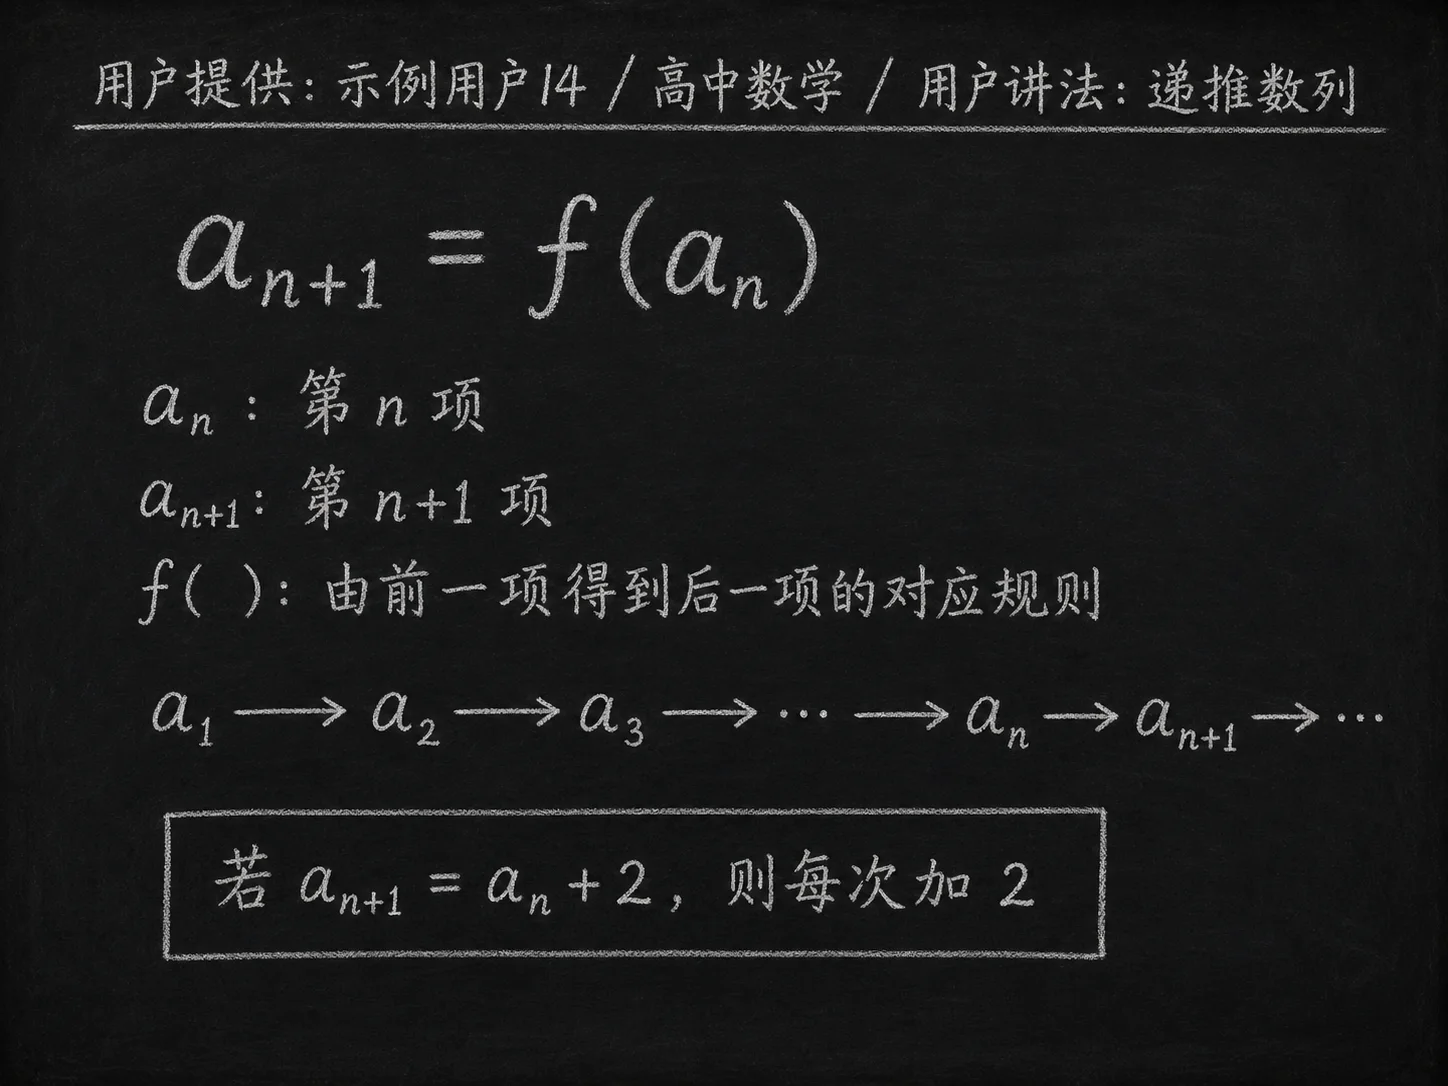 用户提供: 示例用户14 / 高中数学 / 用户讲法: 递推数列
a_{n+1} = f(a_n)
a_n : 第 n 项
a_{n+1}: 第 n+1 项
f( ): 由前一项得到后一项的对应规则
a_1 → a_2 → a_3 → ⋯ → a_n → a_{n+1} → ⋯
若 a_{n+1} = a_n + 2, 则每次加 2